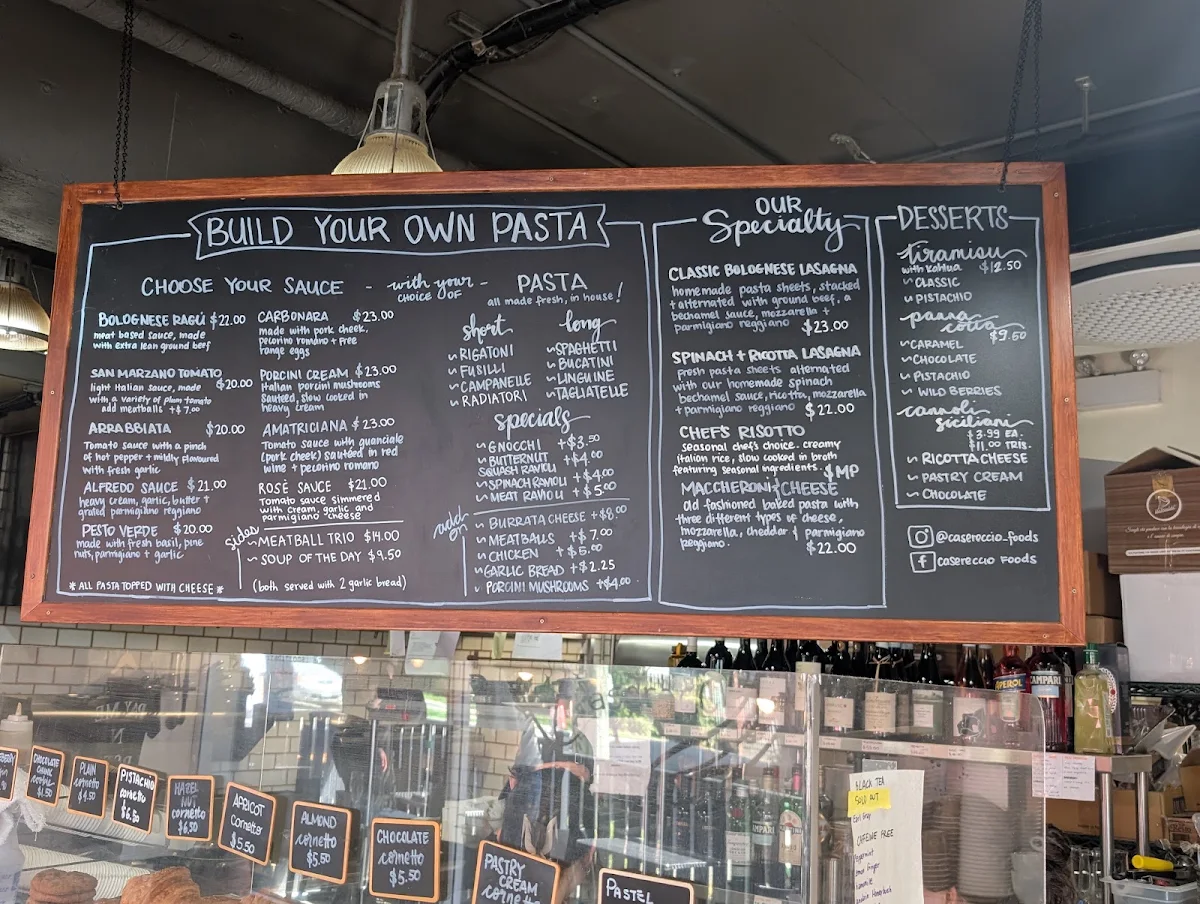 BUILD YOUR OWN PASTA
CHOOSE YOUR SAUCE - with your choice OF - PASTA
all made fresh, in house!
BOLOGNESE RAGÙ $22.00
meat based sauce, made
with extra lean ground beef
SAN MARZANO TOMATO
light Italian sauce, made $20.00
with a variety of plum tomato
add meatballs +$7.00
ARRABBIATA $20.00
Tomato sauce with a pinch
of hot pepper + mildly flavoured
with fresh garlic
ALFREDO SAUCE $21.00
heavy cream, garlic, butter +
grated parmigiano reggiano
PESTO VERDE $20.00
made with fresh basil, pine
nuts, parmigiano + garlic
*ALL PASTA TOPPED WITH CHEESE*
CARBONARA $23.00
made with pork cheek,
pecorino romano + free
range eggs
PORCINI CREAM $23.00
Italian porcini mushrooms
sautéed, slow cooked in
heavy cream
AMATRICIANA $23.00
Tomato sauce with guanciale
(pork cheek) sautéed in red
wine + pecorino romano
ROSÉ SAUCE $21.00
Tomato sauce simmered
with cream, garlic and
parmigiano cheese
sides
~MEATBALL TRIO $14.00
~SOUP OF THE DAY $9.50
(both served with 2 garlic bread)
short
~RIGATONI
~FUSILLI
~CAMPANELLE
~RADIATORI
long
~SPAGHETTI
~BUCATINI
~LINGUINE
~TAGLIATELLE
specials
~GNOCCHI +$3.50
~BUTTERNUT +$4.00
SQUASH RAVIOLI
~SPINACH RAVIOLI +$4.00
~MEAT RAVIOLI +$5.00
add on
~BURRATA CHEESE +$8.00
~MEATBALLS +$7.00
~CHICKEN +$5.00
~GARLIC BREAD +$2.25
~PORCINI MUSHROOMS +$4.00
OUR
Specialty
CLASSIC BOLOGNESE LASAGNA
homemade pasta sheets, stacked
+ alternated with ground beef, a
bechamel sauce, mozzarella +
parmigiano reggiano $23.00
SPINACH + RICOTTA LASAGNA
fresh pasta sheets alternated
with our homemade spinach
bechamel sauce, ricotta, mozzarella
+ parmigiano reggiano $22.00
CHEF'S RISOTTO
seasonal chef's choice. creamy
italian rice, slow cooked in broth
featuring seasonal ingredients. $MP
MACCHERONI & CHEESE
old fashioned baked pasta with
three different types of cheese,
mozzarella, cheddar & parmigiano
reggiano. $22.00
DESSERTS
tiramisu
with Kahlua $12.50
~CLASSIC
~PISTACHIO
panna
cotta $9.50
~CARAMEL
~CHOCOLATE
~PISTACHIO
~WILD BERRIES
cannoli
siciliani
$3.99 EA.
$11.00 TRIS.
~RICOTTA CHEESE
~PASTRY CREAM
~CHOCOLATE
@casereccio_foods
casereccio FOODS
CHOCOLATE
$1.50
PLAIN
cornetto
$4.50
PISTACHIO
cornetto
$6.50
HAZEL
NUT
cornetto
$6.50
APRICOT
cornetto
$5.50
ALMOND
cornetto
$5.50
CHOCOLATE
cornetto
$5.50
PASTRY
CREAM
cornetto
PASTEL
APEROL
CAMPARI
BLACK TEA
SOLD OUT
Earl Grey
CAFFEINE FREE
Peppermint